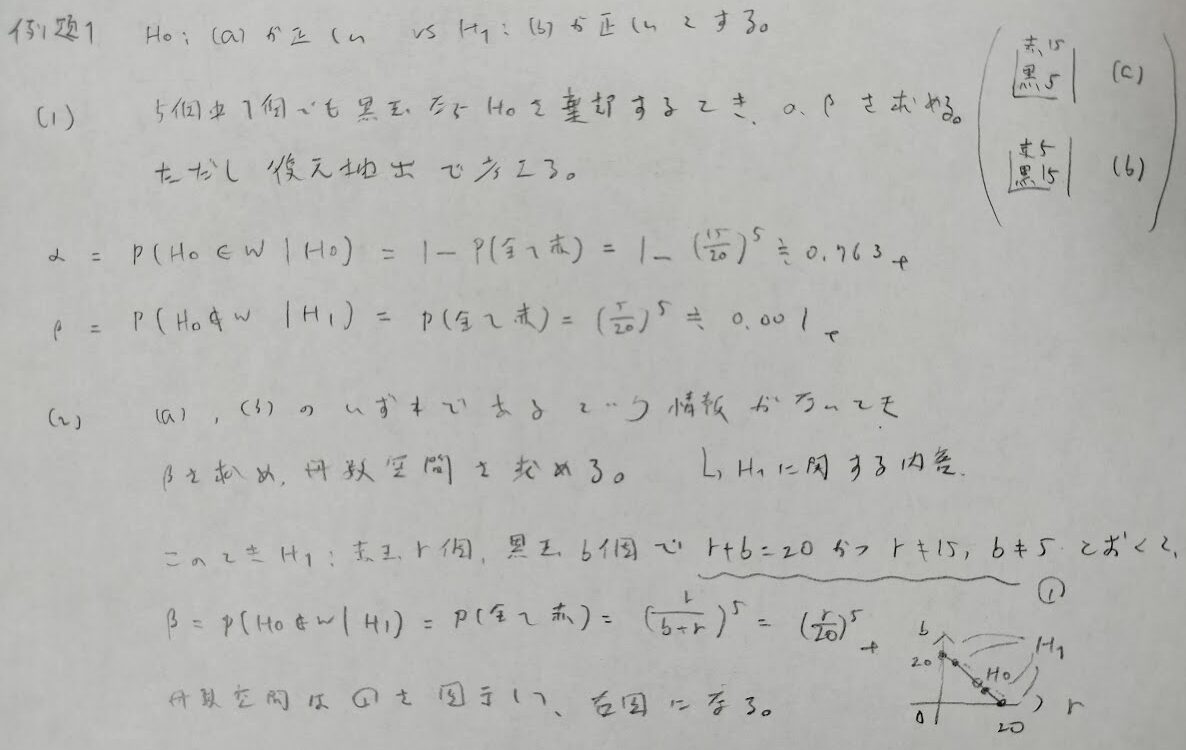 例題1 H₀: (a) が正しい vs H₁: (b) が正しい とする。
赤15
黒5 (a)
赤5
黒15 (b)
(1) 5個中1個でも黒玉ならH₀を棄却するとき、α, βを求める。
ただし復元抽出で考える。
α = P(H₀ ∈ W | H₀) = 1 - P(全て赤) = 1 - (15/20)⁵ ≒ 0.763
β = P(H₀ ∉ W | H₁) = P(全て赤) = (5/20)⁵ ≒ 0.001
(2) (a), (b) のいずれであるという情報がないとき
βを求め、母数空間を求める。 ↳ H₁に関する内容.
このときH₁: 赤玉 r個, 黒玉 b個で r+b=20 かつ r≠15, b≠5 とおくと、
①
β = P(H₀ ∉ W | H₁) = P(全て赤) = (r/(b+r))⁵ = (r/20)⁵
母数空間は①を図示して、右図になる。
b
20
H₁
H₀
0
20
r